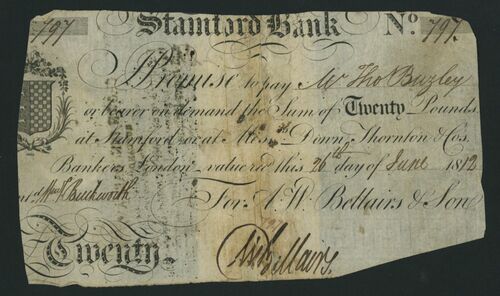 Stamford Bank
797 No. 797.
I Promise to pay Mr Tho Buzley
or bearer on demand the Sum of Twenty Pounds
at Stamford or at Messrs Down, Thornton & Cos.
Bankers London value recd this 26th day of June 1812
For A. W. Bellairs & Son
Buckworth
Twenty
Bellairs